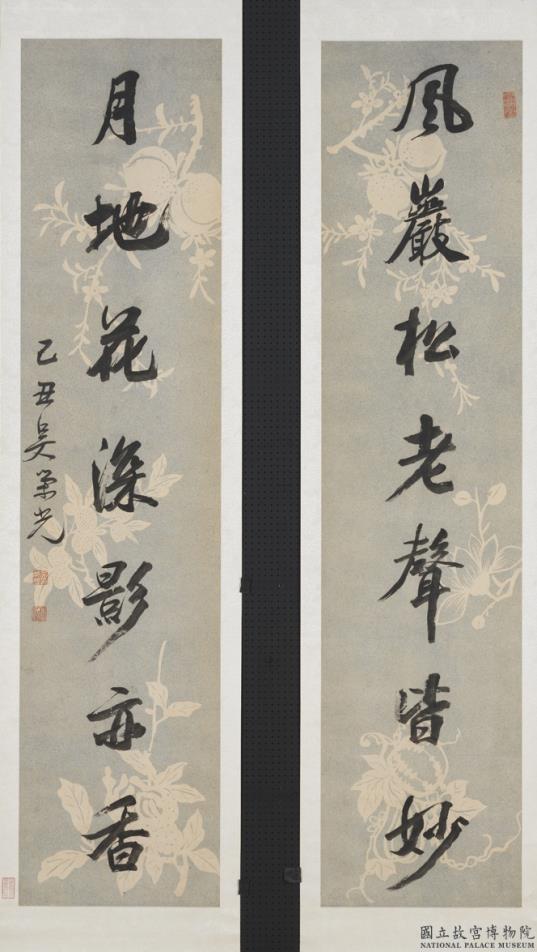 風巖松老聲皆妙
月地花深影亦香
己丑吴榮光
國立故宮博物院
NATIONAL PALACE MUSEUM